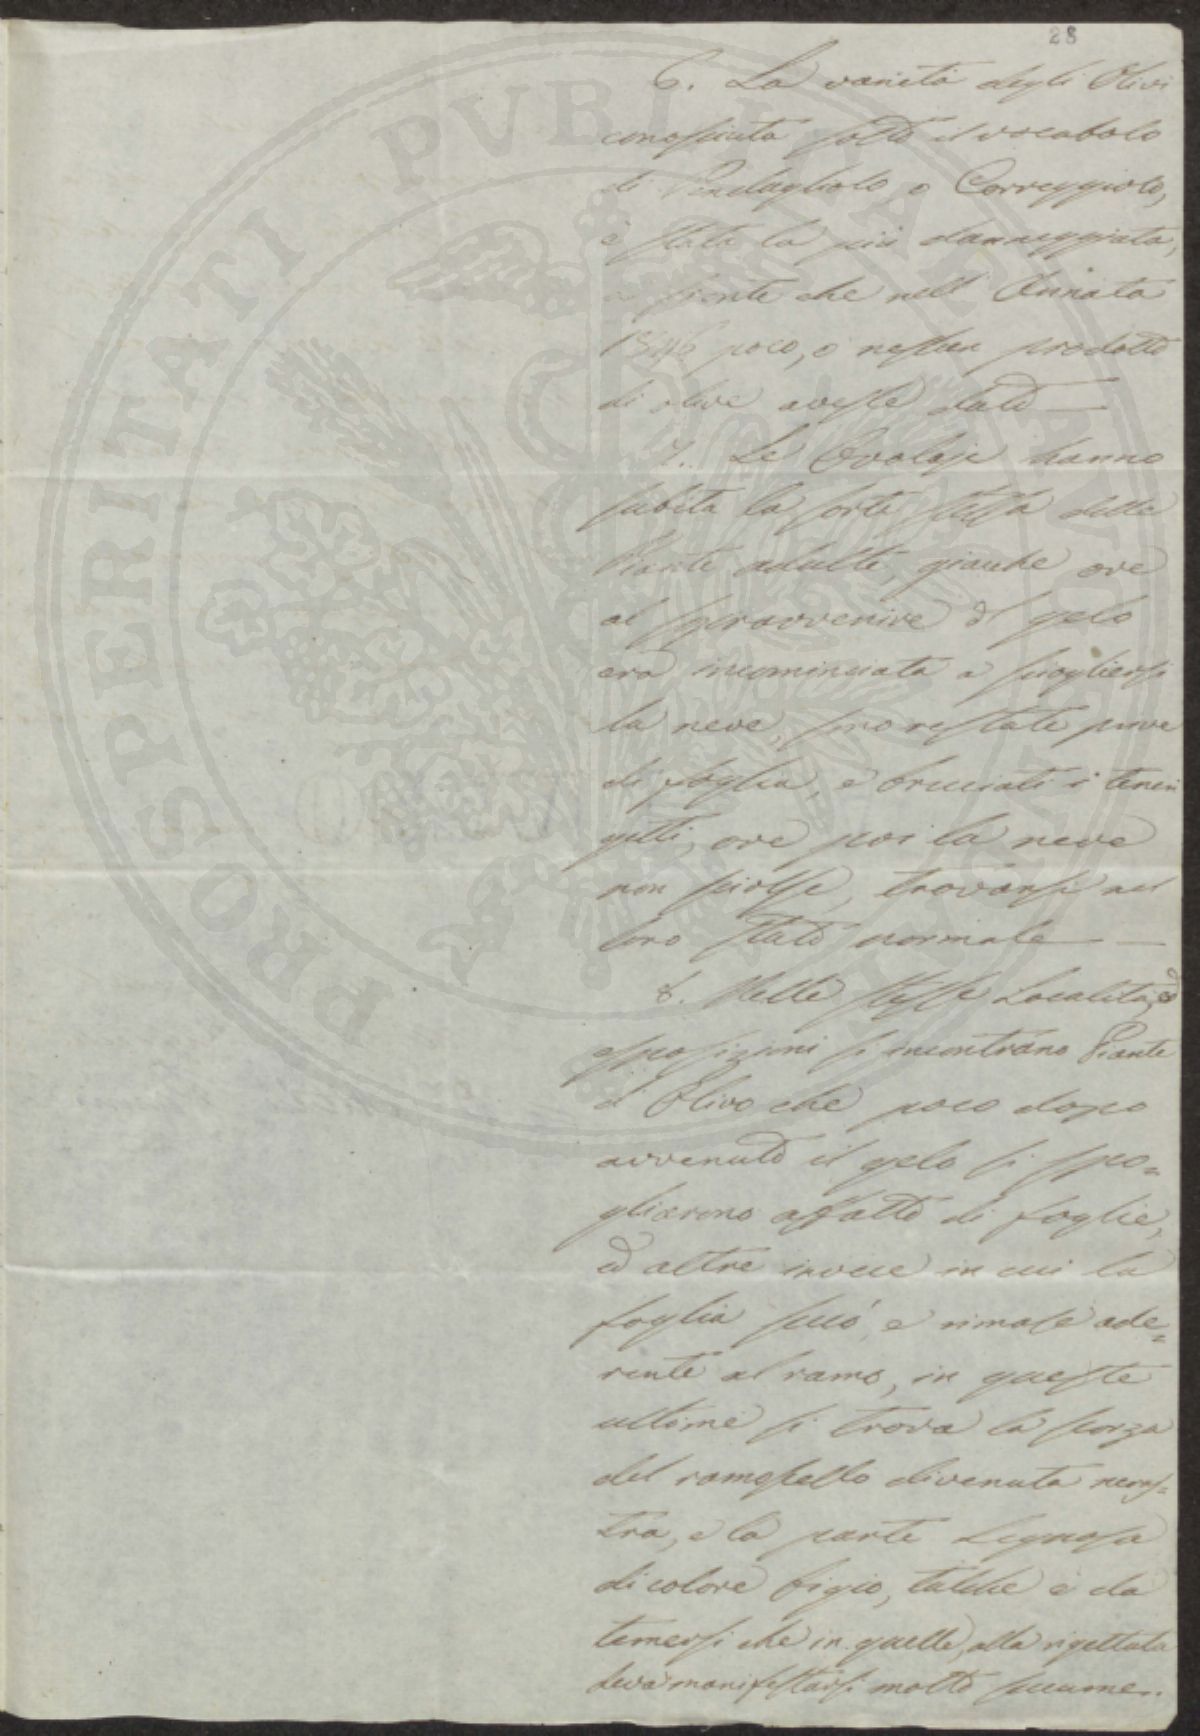 28
6. La varietà degli Olivi
conosciuta sotto il vocabolo
di Pendagliolo, o Correggiolo,
è stata la più danneggiata,
a fronte che nell'Annata
1846 poco, o nessun prodotto
di olive avesse dato —
7. Le Ovolaje hanno
subita la sorte stessa delle
Piante adulte, giacche ove
al sopravvenire del gelo
era incominciata a sciogliersi
la neve, sono restate prive
di foglia, e bruciati i teneri
getti, ove poi la neve
non sciolse, trovansi nel
loro stato normale —
8. Nelle stesse Località, ed
esposizioni si incontrano Piante
d'Olivo che poco dopo
avvenuto il gelo si spo=
gliarono affatto di foglie,
ed altre invece in cui la
foglia seccò, e rimase ade=
rente al ramo, in queste
ultime si trova la scorza
del ramoscello divenuta neras=
tra, e la parte Legnosa
di colore bigio, talche è da
temersi che in quelle, alla rigettata
deva manifestarsi molto seccume.
PROSPERITATI PVBLICAE